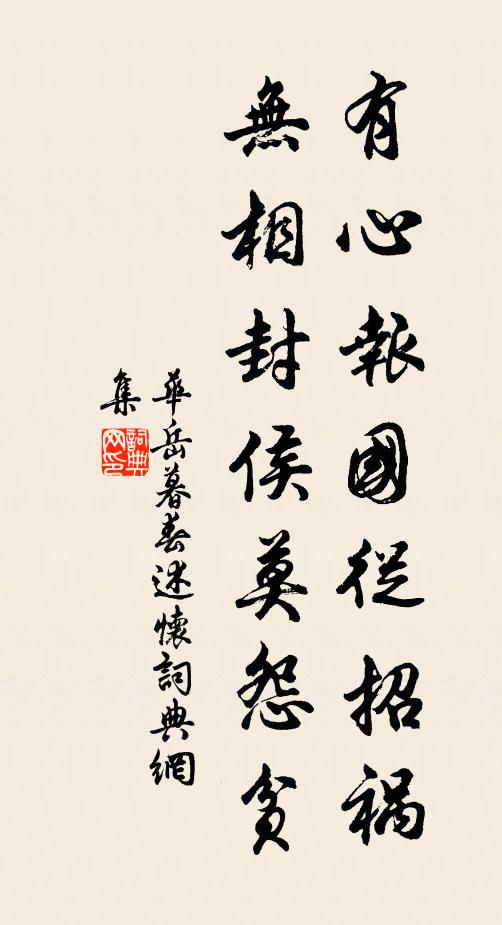 有心報國從招禍
無相封侯莫怨貧
華岳暮春述懷詞典網
集
詞典
网印